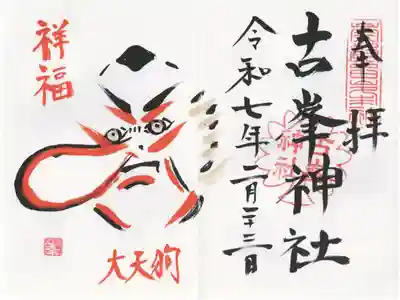 奉拝
古峯神社
古峯
神社
令和七年二月二十三日
祥福
大天狗